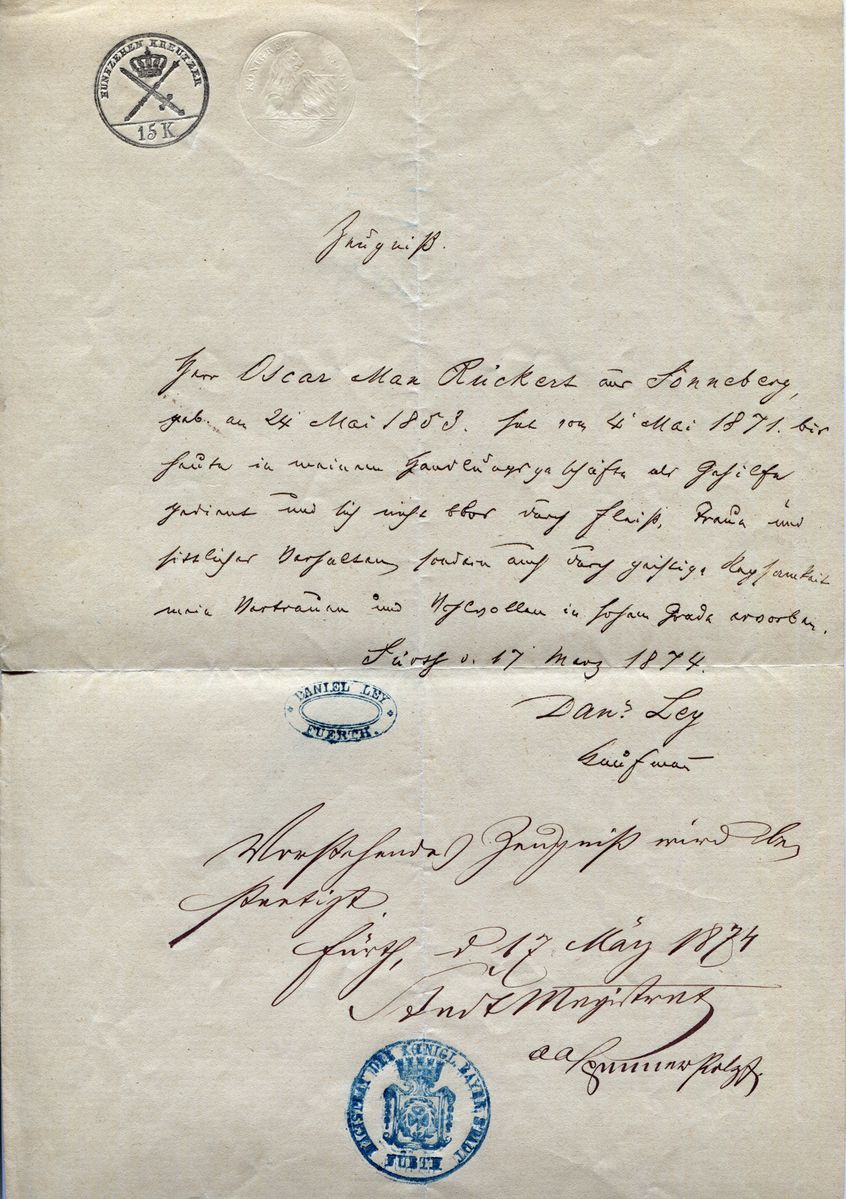 FUNFZEHEN KREUTZER
15 K
Zeugniß.
Herr Oscar Max Rückert aus Sonneberg,
geb. am 24 Mai 1853. hat vom 4 Mai 1871. bis
heute in meinem Handlungsgeschäfte als Gehilfe
gedient und sich nicht blos durch Fleiß, Treue und
sittliches Verhalten, sondern auch durch geistige Regsamkeit
mein Vertrauen und Wohlwollen in hohem Grade erworben.
Fürth d. 17 Merz 1874.
DANIEL LEY
FUERTH.
Danl. Ley
Kaufmann
Vorstehendes Zeugniß wird be
staetigt
Fürth, d. 17 März 1874
StadtMagistrat
MAGISTRAT DER KÖNIGL. BAYER. STADT
FÜRTH